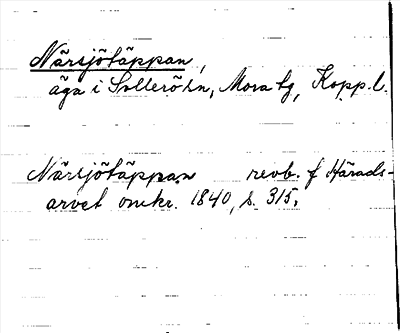 Närsjötäppan,
äga i Sollerö hn, Mora tg, Kopp. l.
Närsjötäppan revb. f Härads-
arvet omkr. 1840, s. 315.